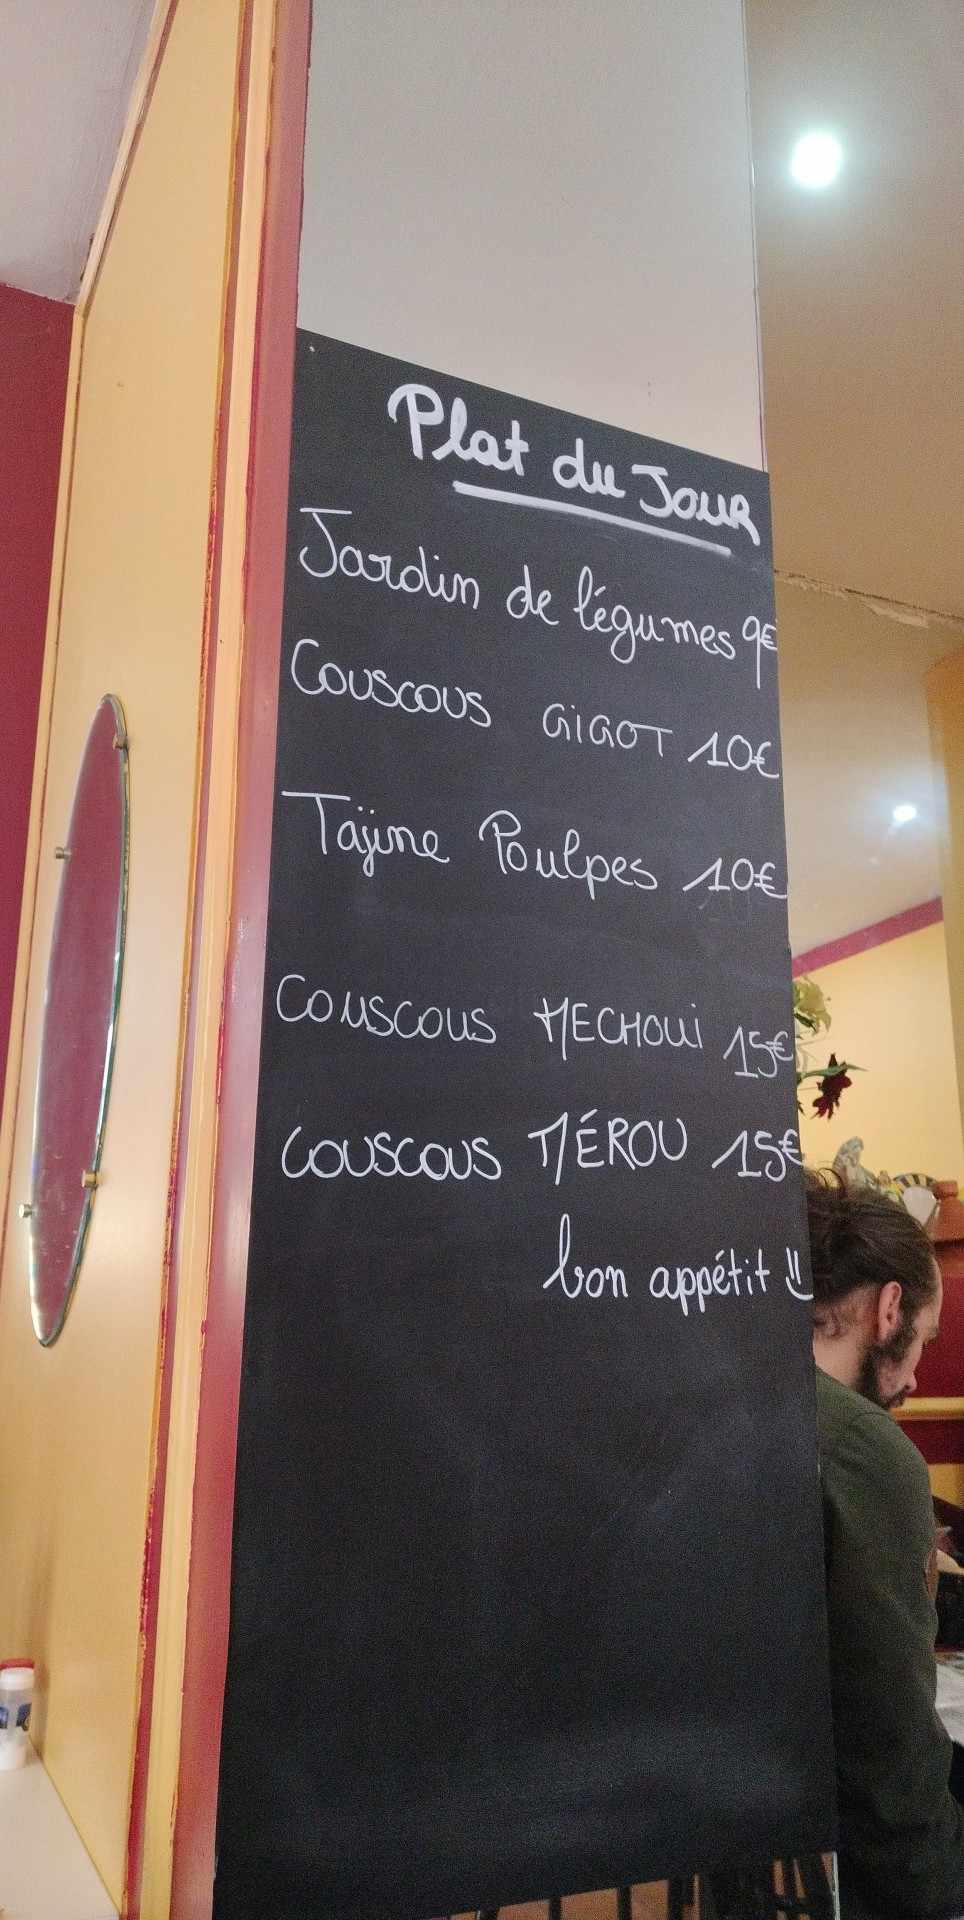 Plat du Jour
Jardin de légumes 9€
Couscous GIGOT 10€
Tajine Poulpes 10€
Couscous MECHOUI 15€
Couscous MÉROU 15€
bon appétit !!